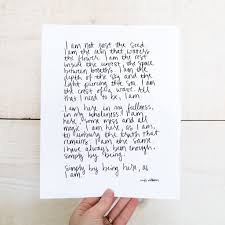 I am not just the seed
I am the rain that waters
the flower. I am the rest
inside the unrest, the space
between breaths. I am the
depth of the sky and the
light piercing the sea. I am the
crest of a wave. All
that I need to be, I am.
I am here, in my fullness,
in my wholeness. I am
here, some mess and all
magic. I am here, as I am,
to the truth that
remains. I am the same
I have always been enough,
simply by being.
Simply by being here, as
I am.